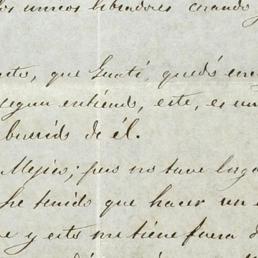 os unicos libradores cuando
sto, que Guati, quedó en
segun entiendo, este, es un
querido de él.
Mejico; pero no tuve luga
he tenido que hacer un
e y esto me tiene fuera d